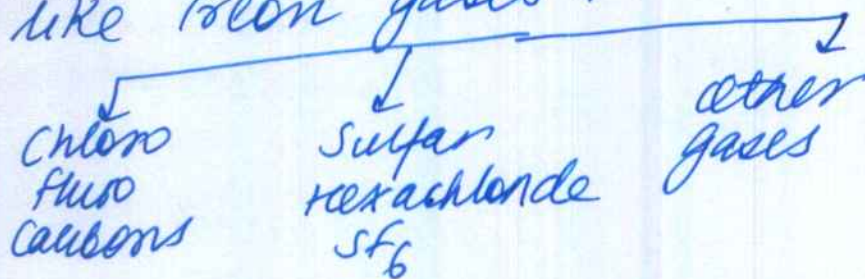 like freon gases
Chloro
fluro
carbons
Sulfar
Hexachloride
SF6
other
gases